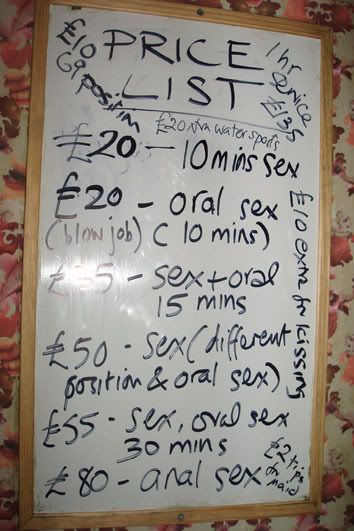 £10
69 position
PRICE
LIST
1hr
service
£135
£20 xtra water sports
£20 - 10 mins sex
£20 - oral sex
(blow job) (10 mins)
£35 - sex + oral
15 mins
£50 - sex (different
position & oral sex)
£55 - sex, oral sex
30 mins
£80 - anal sex
£10 extra for kissing
£2 tips
for maid